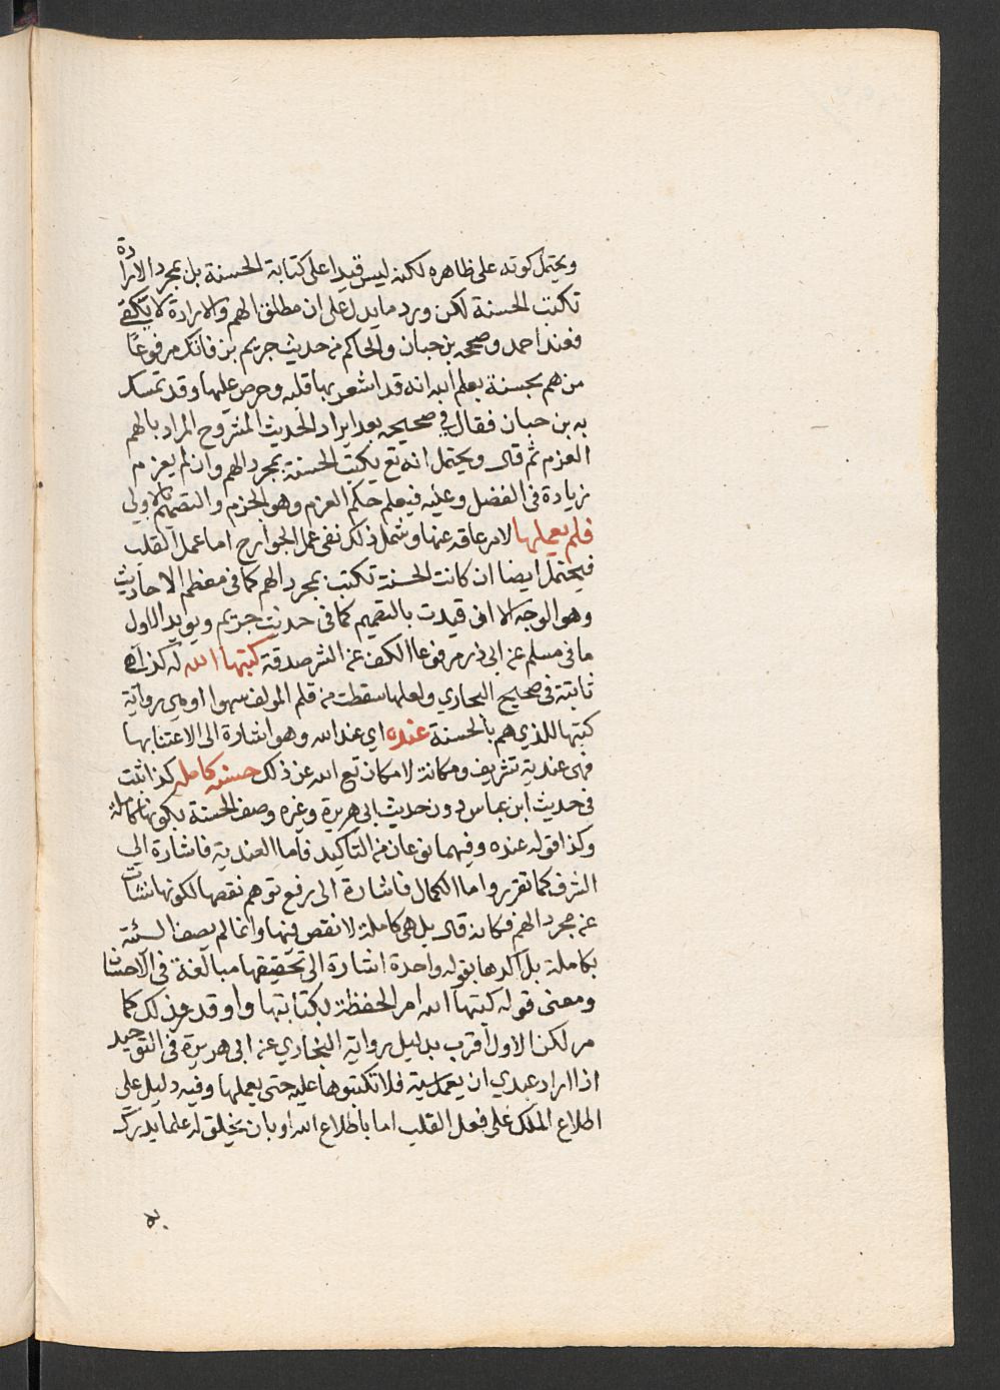 ويحتمل كونه على ظاهره لكنه ليس قيدا على كتابة الحسنة بل بمجرد الارادة
تكتب الحسنة لكن ورد ما يدل على ان مطلق الهم والارادة لا يكفي
فعند احمد وصححه بن حبان والحاكم من حديث خريم بن فاتك مرفوعا
من هم بحسنة يعلم الله انه قد اشعر بها قلبه وحرص عليها وقد تمسك
به بن حبان فقال في صحيحه بعد ايراد الحديث المشروح المراد بالهم
العزم ثم قال ويحتمل انه تع يكتب الحسنة بمجرد الهم وان لم يعزم
زيادة في الفضل وعليه فيعلم حكم العزم وهو الجزم والتصميم بالاولى
فلم يعملها لامر عاقه عنها وشمل ذلك نفى عمل الجوارح اما عمل القلب
فيحتمل ايضا ان كانت الحسنة تكتب بمجرد الهم كما في معظم الاحاديث
وهو الوجه لا ان قيدت بالتصميم كما في حديث خريم ويويد الاول
ما في مسلم عن ابي ذر مرفوعا الكف عن الشر صدقة كتبها الله له كذا
ثابتة في صحيح البخاري ولعلها سقطت من قلم المولف سهوا او هي رواية
كتبها للذي هم بالحسنة عنده اي عند الله وهو اشارة الى الاعتنا بها
فهى عندية تشريف ومكانة لا مكان تع الله عن ذلك حسنه كامله كذا ثبت
في حديث ابن عباس دون حديث ابي هريرة وغيره وصف الحسنة بكونها كاملة
وكذا قوله عنده وفيهما نوعان من التاكيد فاما العندية فاشارة الى
الشرف كما تقرر واما الكمال فاشارة الى رفع توهم نقصها لكونها نشات
عن مجرد الهم فكانه قال بل هى كاملة لا نقص فيها وانما لم يصف السيئة
بكاملة بل اكدها بقوله واحدة اشارة الى تخفيفها مبالغة في الاحسان
ومعنى قوله كتبها الله امر الحفظة بكتابتها او قدر ذلك كما
مر لكن الاول اقرب بدليل رواية البخاري عن ابي هريرة في التوحيد
اذا اراد عبدي ان يعمل سيئة فلا تكتبوها عليه حتى يعملها وفيه دليل على
اطلاع الملك على فعل القلب اما باطلاع الله او بان يخلق له علما يدرك
به